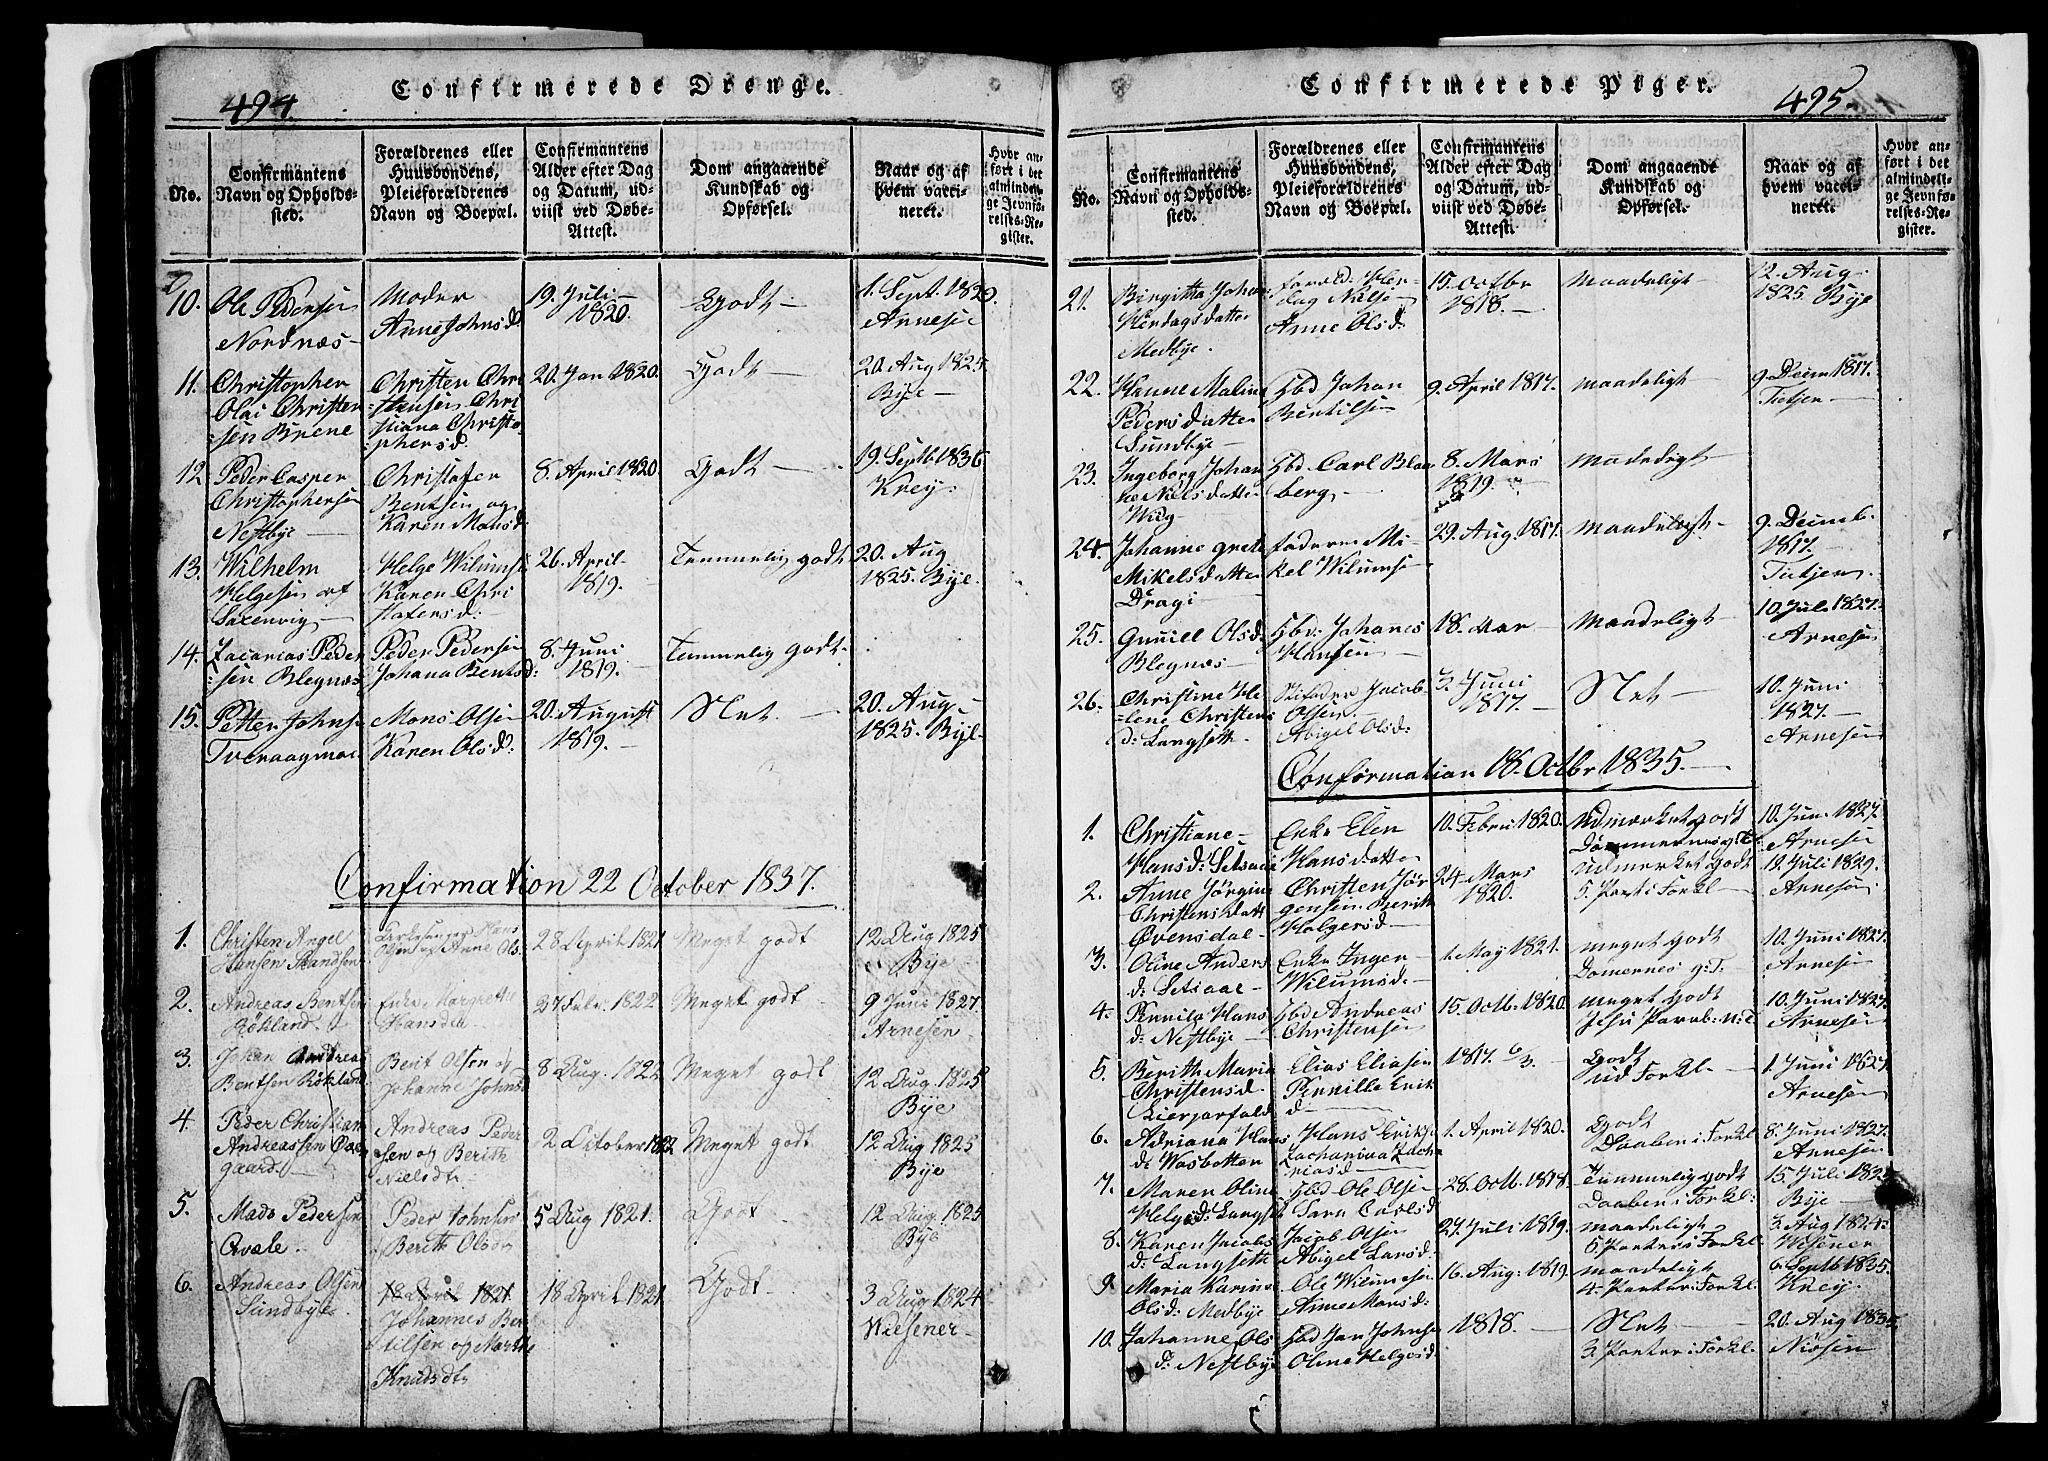 494.
Confirmerede Drenge.
No.
Confirmantens
Navn og Opholds-
sted.
Forældrenes eller
Huusbondens,
Pleieforældrenes
Navn og Boepæl.
Confirmantens
Alder efter Dag
og Datum, ud-
viist ved Døbe-
Attest.
Dom angaaende
Kundskab og
Opførsel.
Naar og af
hvem vacci-
neret.
Hvor an-
ført i det
almindeli-
ge Jevnfø-
relses-Re-
gister.
10.
Ole Pedersen
Nordnæs
Moder
Anne Johnsd
19. Juli
1820.
Godt
1. Sept.
Arnesen
11.
Christopher
Olai Christen
sen Brene
Christen Chri
stensen Chri
stiana Christo
phersd.
20. Jan 1820.
Godt
20. Aug 1825
Bye
12
Peder Casper
Christophersen
Nestbye
Christofer
Bentsen og
Karen Monsd:
8. April 1820.
Godt
19. Septb. 1836
Krey
13.
Wilhelm
Helgesen af
Saxenvig
Helge Wilums
Karen Chri
stofersd:
26. April
1819.
Temmelig godt
20. Aug
1825. Bye
14.
Zacarias Peder
sen Blegnæs
Peder Pedersen
Johana Bentsd:
8. Juni
1819.
Temmelig godt.
15.
Petter Johns
Tveraagmoe
Mons Olsen
Karen Olsd:
20. August
1819.
Slet
20. Aug
1825. Bye
Confirmation 22 October 1837.
1.
Christen Angel
Hansen Strandsen
Hans
Olsen og Anne Ols
28 April 1821
Meget godt
12 Aug 1825
Bye
2.
Andreas Bentsen
Røkland.
Enke Margrethe
Hansdtr
27 Febr. 1822
Meget godt
9 Juni 1827
Arnesen
3.
Johan Andreas
Bentsen Røkland
Bent Olsen og
Johanne Johns
8 Aug. 1822
Meget godt
12 Aug 1825
Bye
4.
Peder Christian
Andreassen
gaard.
Andreas Peder
sen og Berith
Nielsdtr
2 October 1822
Meget godt
12 Aug 1825
Bye
5.
Mads Pedersen
Qvale.
Peder Johnsen
Berith Olsdtr
5 Aug 1821.
Godt
12 Aug 1825
Bye
6.
Andreas Olsen
Sundbye
18 April 1821
Johannes Ber
tilsen og Marthe
Knudsdtr
18 April 1821
Godt
3 Aug 1824
Wiesener
Confirmerede Piger.
495.
No.
Confirmantens
Navn og Opholds-
sted.
Forældrenes eller
Huusbondens,
Pleieforældrenes
Navn og Boepæl.
Confirmantens
Alder efter Dag
og Datum, ud-
viist ved Døbe-
Attest.
Dom angaaende
Kundskab og
Opførsel.
Naar og af
hvem vacci-
neret.
Hvor an-
ført i det
almindeli-
ge Jevnfø-
relses-Re-
gister.
21.
Birgitha Johan
Herdagsdatter
Medbye.
Foræld: Her
dag Nilsen
Anne Olsd:
15. Octbr
1818.
Maadeligt
12. Aug:
1825. Bye
22.
Hanne Malene
Pedersdatter
Sundbye
Hbd Johan
Bertilsen
9. April 1817.
maadeligt
9. Decim 1817.
Tutjen
23.
Ingeborg Johan
ne Nielsdatter
Wig
Hbd. Carl Blaa
berg
8. Mars
1819.
Maadeligt
24.
Johanne Grete
Mikelsdatter
Dragi
Faderen Mi
kel Wilumsen
29. Aug. 1817.
maadeligt
9. Decimb.
1817.
Tutjen
25.
Gunild Olsd:
Blegnæs
Hbd: Johanes
Hansen
18. Mar
Maadeligt
10. Juli 1827.
Arnesen
26.
Christine He
lene Christens
d: Langseth
Stifader Jacob
Olsen
Abigel Olsd:
3. Juni
1817.
Slet
10. Juni
1827.
Arnesen
Confirmation 18. Octbr 1835.
1.
Christiane
Hansd: Setsaae
Enke Elen
Hansdatter
10. Febru 1820.
Udmærket godt
10. Jun. 1827.
Arnesen
2.
Anne Jørgine
Christensdatt
Øvensdal
Christen Jør
gensen Berith
Holgersd.
24. Mars
1820.
Udmerket godt
5. Parter i Forkl.
12. Juli 1829.
Arnesen
3.
Oline Anders
d: Setsaae
Enke Inger
Wilumsd.
1. May 1821.
meget godt
10. Juni 1827.
Arnesen
4.
Pernila Hans
d: Nestbye
Hbd Andreas
Christensen
15. Octb. 1820.
meget godt
10. Juni 1827.
Arnesen
5.
Berith Maria
Christensd
Lierjarfald
Elias Eliasen
Pernille Erik
d
1817. 6/3.
Godt
ud Forkl.
1. Juni 1827.
Arnesen
6.
Adriana Hans
d: Wasbotten
Hans Eriks
Zachariaa Zacha
riasd:
1. April 1820.
Godt
Daaben i Forkl
8. Juni 1827.
Arnesen
7.
Maren Oline
Helgesd: Langset
Hbd. Ole Olsen
Sara Carlsd
28. Octb. 1818.
Temmelig godt
Daaben i Forkl:
15. Juli
Bye
8.
Karen Jacobs
d: Langseth
Jacob Olsen
Abigel Larsd:
27. Juli 1819.
maadeligt
5. Parter i Forkl.
3. Aug 1824.
Wesener
9.
Maria Karina
Olsd: Medbye
Ole Wilumsen
Anne Marsd:
16. Aug: 1819.
maadeligt
4. Parter i Forkl.
6. Septb 1835.
Krey
10.
Johanne Ols
d: Nestbye
Hbd Jan Johnsen
Oline Helgesd.
1818.
Slet
3. Parter i Forkl.
20. Aug 1835.